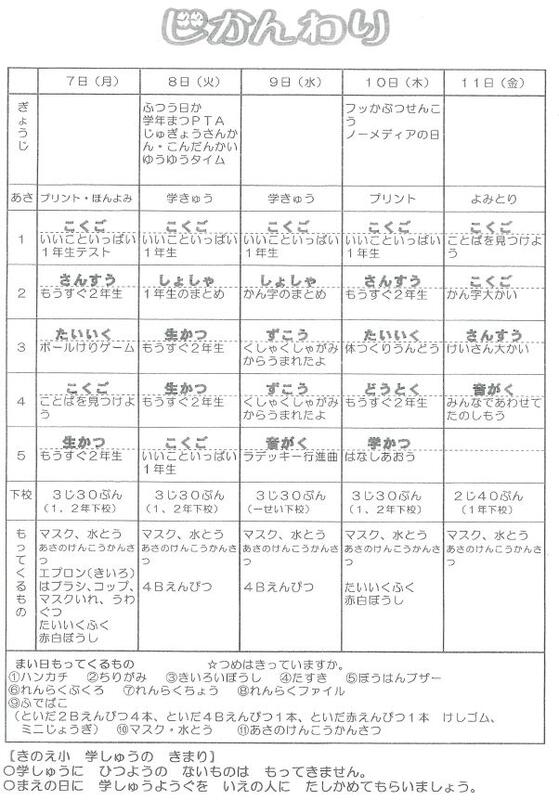 じかんわり
７日（月） ８日（火） ９日（水） １０日（木） １１日（金）
ぎょうじ
ふつう日か
学年まつＰＴＡ
じゅぎょうさんか
ん・こんだんかい
ゆうゆうタイム
フッかぶつせんこ
う
ノーメディアの日
あさ プリント・ほんよみ 学きゅう 学きゅう プリント よみとり
1 こくご こくご こくご こくご こくご
いいこといっぱい いいこといっぱい いいこといっぱい いいこといっぱい ことばを見つけよ
１年生テスト １年生 １年生 １年生 う
2 さんすう しょしゃ しょしゃ さんすう こくご
もうすぐ２年生 １年生のまとめ かん字のまとめ もうすぐ２年生 かん字大かい
3 たいいく 生かつ ずこう たいいく さんすう
ボールけりゲーム もうすぐ２年生 くしゃくしゃがみ 体つくりうんどう けいさん大かい
からうまれたよ
4 こくご 生かつ ずこう どうとく 音がく
ことばを見つけよ もうすぐ２年生 くしゃくしゃがみ もうすぐ２年生 みんなであわせて
う からうまれたよ たのしもう
5 生かつ こくご 音がく 学かつ
もうすぐ２年生 いいこといっぱい ラデッキー行進曲 はなしあおう
１年生
下校 ３じ３０ぷん ３じ３０ぷん ３じ３０ぷん ３じ３０ぷん ２じ４０ぷん
（１、２年下校） （１、２年下校） （一せい下校） （１、２年下校） （１年下校）
もってくるもの
マスク、水とう マスク、水とう マスク、水とう マスク、水とう マスク、水とう
あさのけんこうかんさ あさのけんこうかんさ あさのけんこうかんさ あさのけんこうかんさ あさのけんこうかんさ
つ つ つ つ つ
エプロン（きいろ）
はブラシ、コップ、 ４Ｂえんぴつ ４Ｂえんぴつ たいいくふく
マスクいれ、うわ 赤白ぼうし
ぐつ
たいいくふく
赤白ぼうし
まい日もってくるもの ☆つめはきっていますか。
①ハンカチ ②ちりがみ ③きいろいぼうし ④たすき ⑤ぼうはんブザー
⑥れんらくぶくろ ⑦れんらくちょう ⑧れんらくファイル
⑨ふでばこ
（といだ２Ｂえんぴつ４本、といだ４Ｂえんぴつ１本、といだ赤えんぴつ１本 けしゴム、
ミニじょうぎ） ⑩マスク・水とう ⑪あさのけんこうかんさつ
［きのえ小 学しゅうの きまり］
○学しゅうに ひつようの ないものは もってきません。
○まえの日に 学しゅうようぐを いえの人に たしかめてもらいましょう。